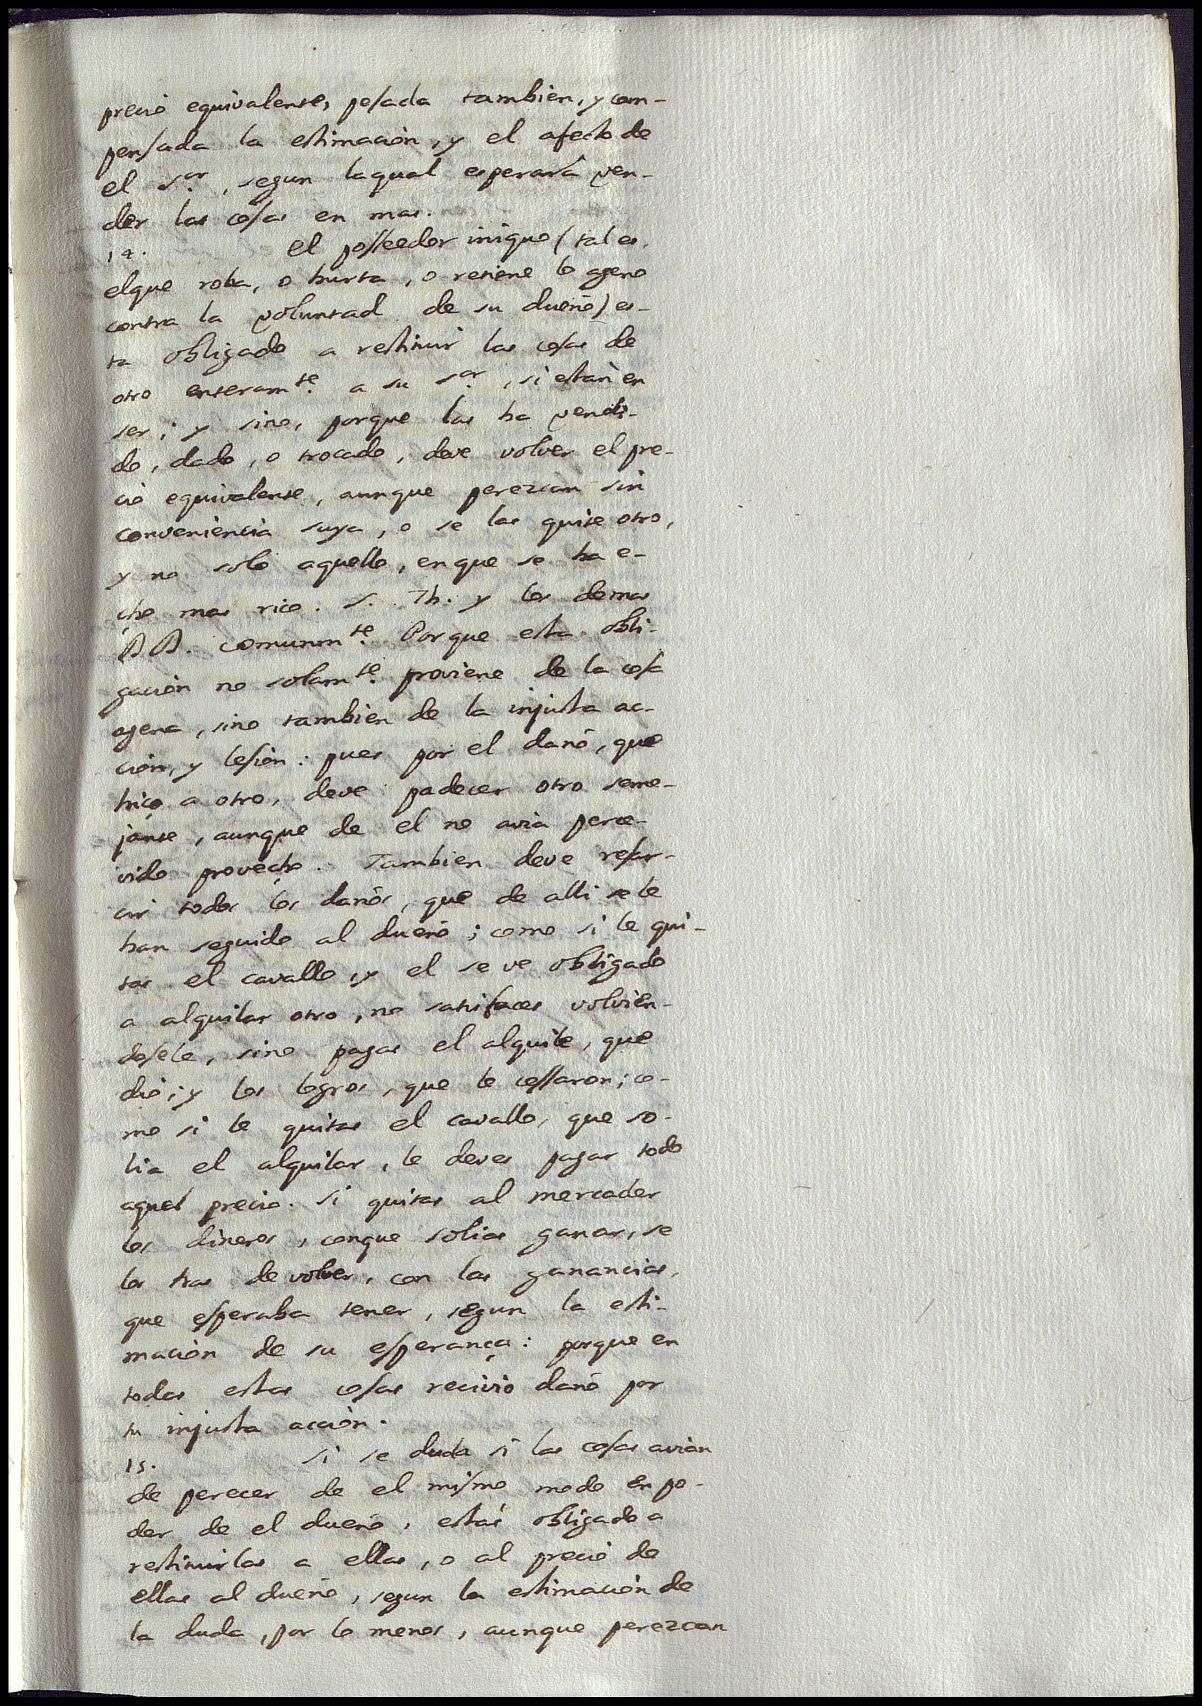 precio equivalente, pesada tambien, y com-
pensada la estimación, y el afecto de
el s.or, segun laqual esperará ven-
der las cosas en mas.
14. El posseedor iniquo (tal es,
elque roba, o hurta, o retiene lo ageno
contra la voluntad de su dueño) es-
ta obligado a restituir las cosas de
otro enteram.te a su s.or, si estan en
ser; y sino, porque las ha vendi-
do, dado, o trocado, deve volver el pre-
cio equivalente, aunque perezcan sin
conveniencia suya, o se las quite otro,
y no solo aquello, en que se ha e-
cho mas rico. S. Th. y los demas
DD. comunm.te Porque esta obli-
gación no solam.te proviene de la cosa
agena, sino tambien de la injusta ac-
ción, y lesión: pues por el daño, que
hiço a otro, deve padecer otro seme-
jante, aunque de el no avia perce-
vido provecho. Tambien deve resar-
cir todos los daños, que de alli se le
han seguido al dueño; como si le qui-
tas el cavallo, y el se ve obligado
a alquilar otro, no satisfaces volvien-
dosele, sino pagas el alquile, que
dio; y los logros, que le cessaron; co-
mo si le quitas el cavallo, que so-
lia el alquilar, le deves pagar todo
aquel precio. Si quitas al mercader
los dineros, conque solias ganar, se
los has de volver, con las ganancias,
que esperaba tener, segun la esti-
mación de su esperança: porque en
todas estas cosas recivio daño por
tu injusta acción.
15. Si se duda si las cosas avian
de perecer de el mismo modo en po-
der de el dueño, estás obligado a
restituirlas a ellas, o al precio de
ellas al dueño, segun la estimación de
la duda, por lo menos, aunque perezcan